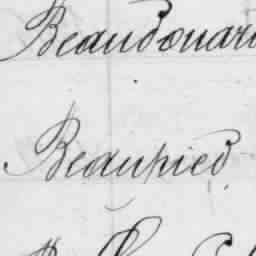 Beaudouard
Beaupied